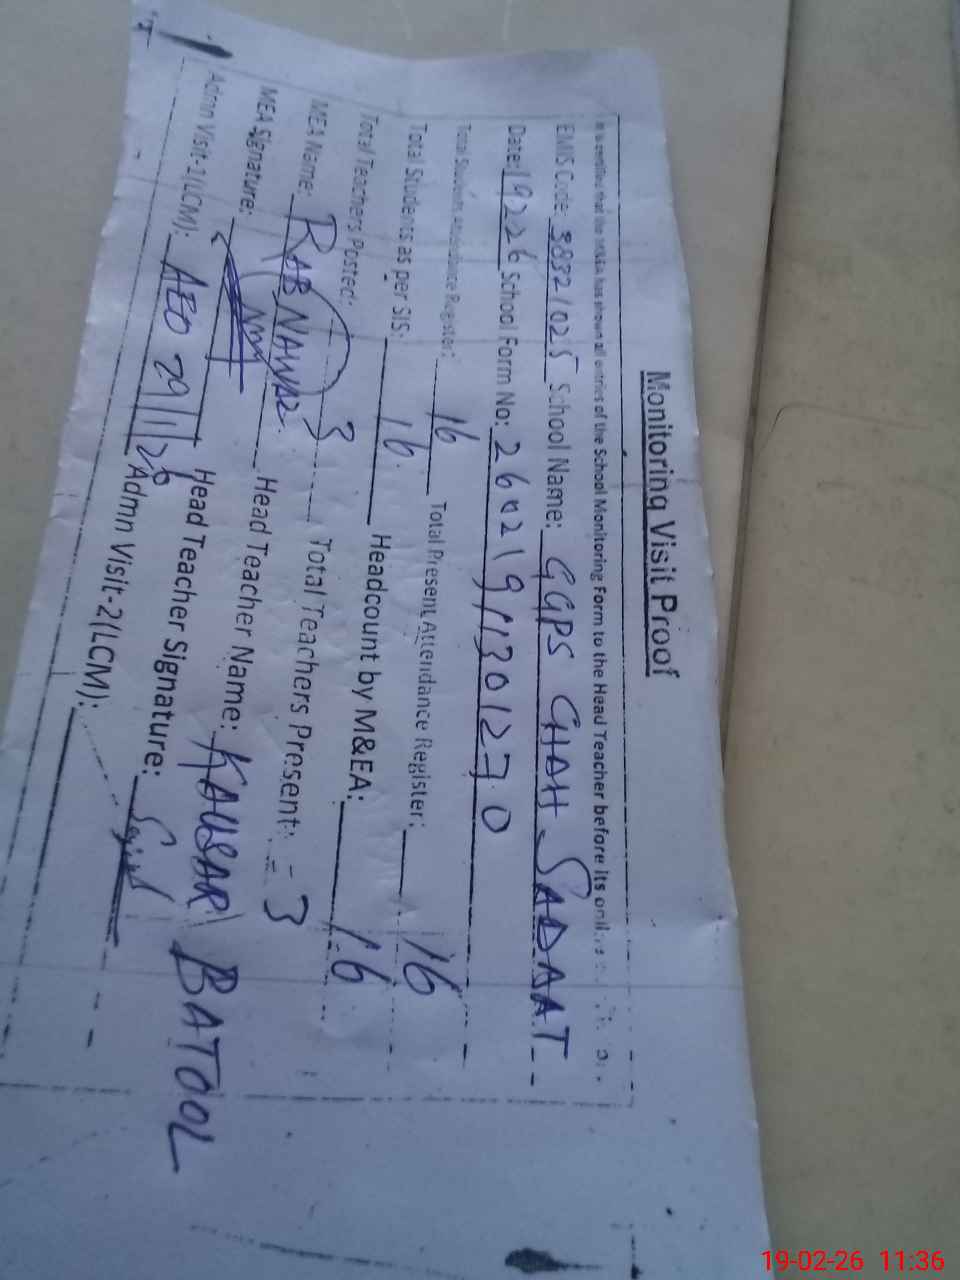 Monitoring Visit Proof
It is certified that the MEA has shown all entries of the School Monitoring Form to the Head Teacher before its
EMIS Code: 38321025 School Name: GGPS GHAH SADAAT
Date: 19226 School Form No: 26021911301270
Total Students Attendance Register: 16 Total Present Attendance Register: 16
Total Students as per SIS: 16 Headcount by M&EA: 16
Total Teachers Posted: 3 Total Teachers Present: 3
MEA Name: RAB NAWAZ Head Teacher Name: KAUSAR BATOOL
MEA Signature: Head Teacher Signature:
Admn Visit-1(LCM): AEO 29/1/26 Admn Visit-2(LCM):
19-02-26 11:36